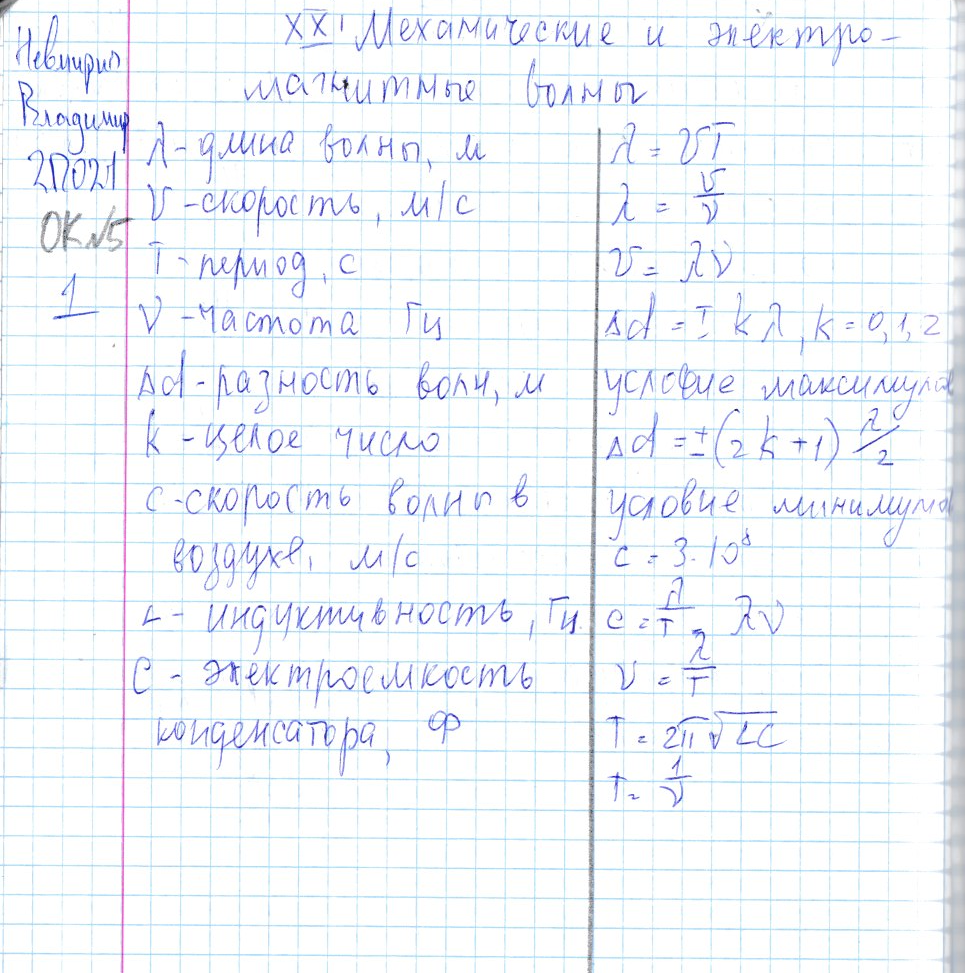 XXI Механические и электро-
магнитные волны
Владимир
2П021
ОК №5
1
λ - длина волны, м
v - скорость, м/с
T - период, с
ν - частота Гц
Δd - разность волн, м
k - целое число
c - скорость волны в
воздухе, м/с
L - индуктивность, Гц
C - электроемкость
конденсатора, Ф
λ = vT
λ = v/ν
v = λν
Δd = ± kλ, k = 0, 1, 2
условие максимумов
Δd = ±(2k+1) λ/2
условие минимумов
c = 3·10⁸
c = λ/T = λν
ν = λ/T
T = 2π√LC
T = 1/ν